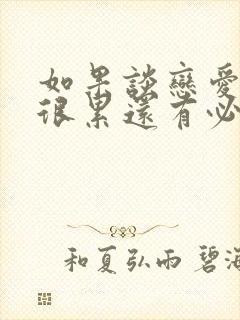 如果談戀愛
很累還有必
和夏弘雨 碧海